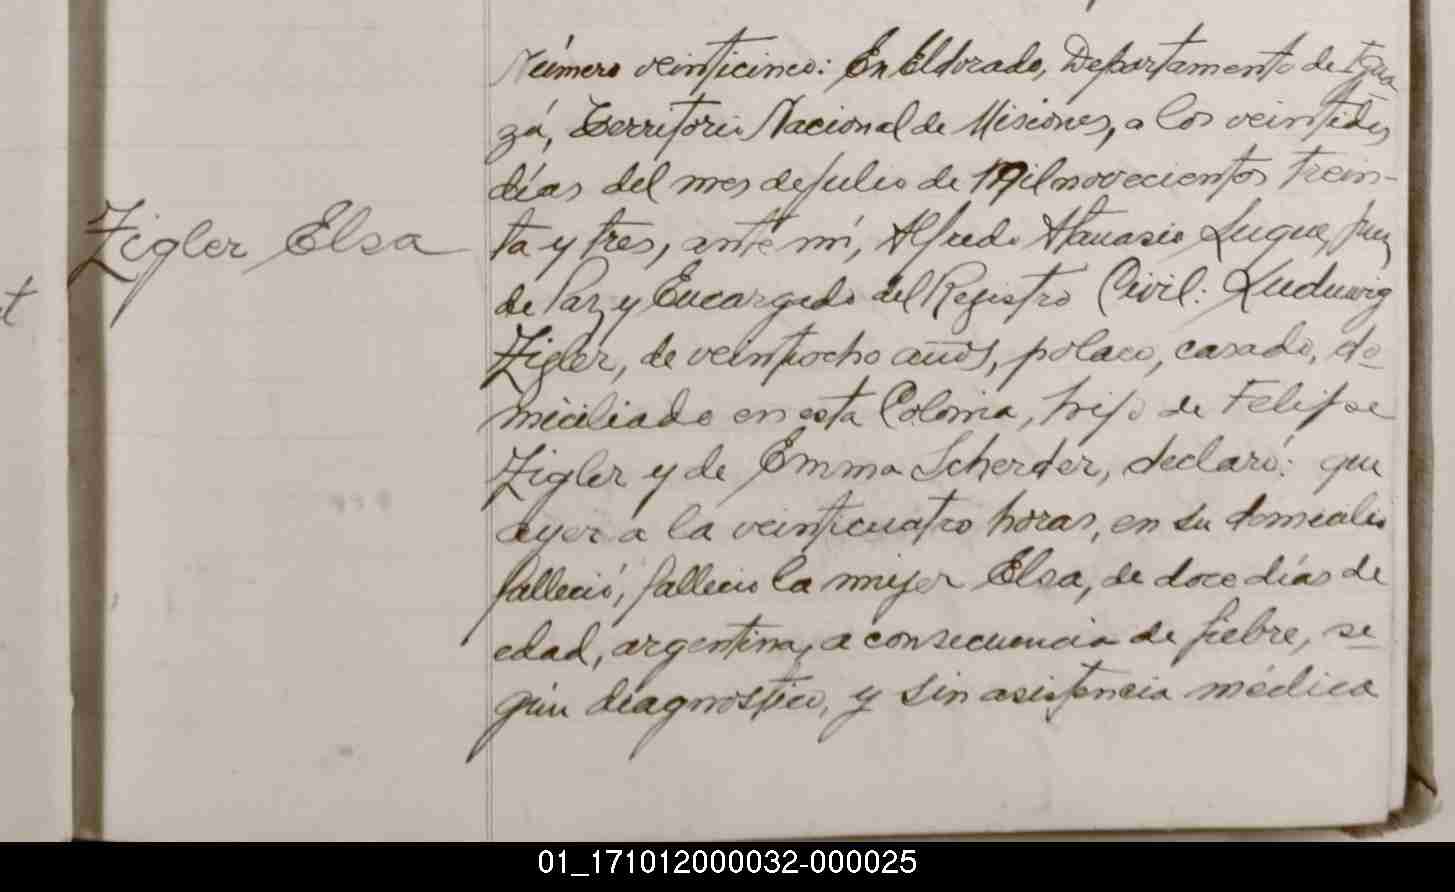 Zigler Elsa
Número veinticinco: En Eldorado, Departamento de Igua
zú, Territorio Nacional de Misiones, a los veintidos
días del mes de Julio de Mil novecientos trein-
ta y tres, ante mí, Alfredo Atanasio Luque, Juez
de Paz y Encargado del Registro Civil: Ludwig
Zigler, de veintiocho años, polaco, casado, do-
miciliado en esta Colonia, hijo de Felipe
Zigler y de Emma Scherder, declaró: que
ayer a la veinticuatro horas, en su domicilio
falleció, fallecio la mujer Elsa, de doce días de
edad, argentina, a consecuencia de fiebre, se-
gún diagnostico, y sin asistencia médica
t
01_171012000032-000025